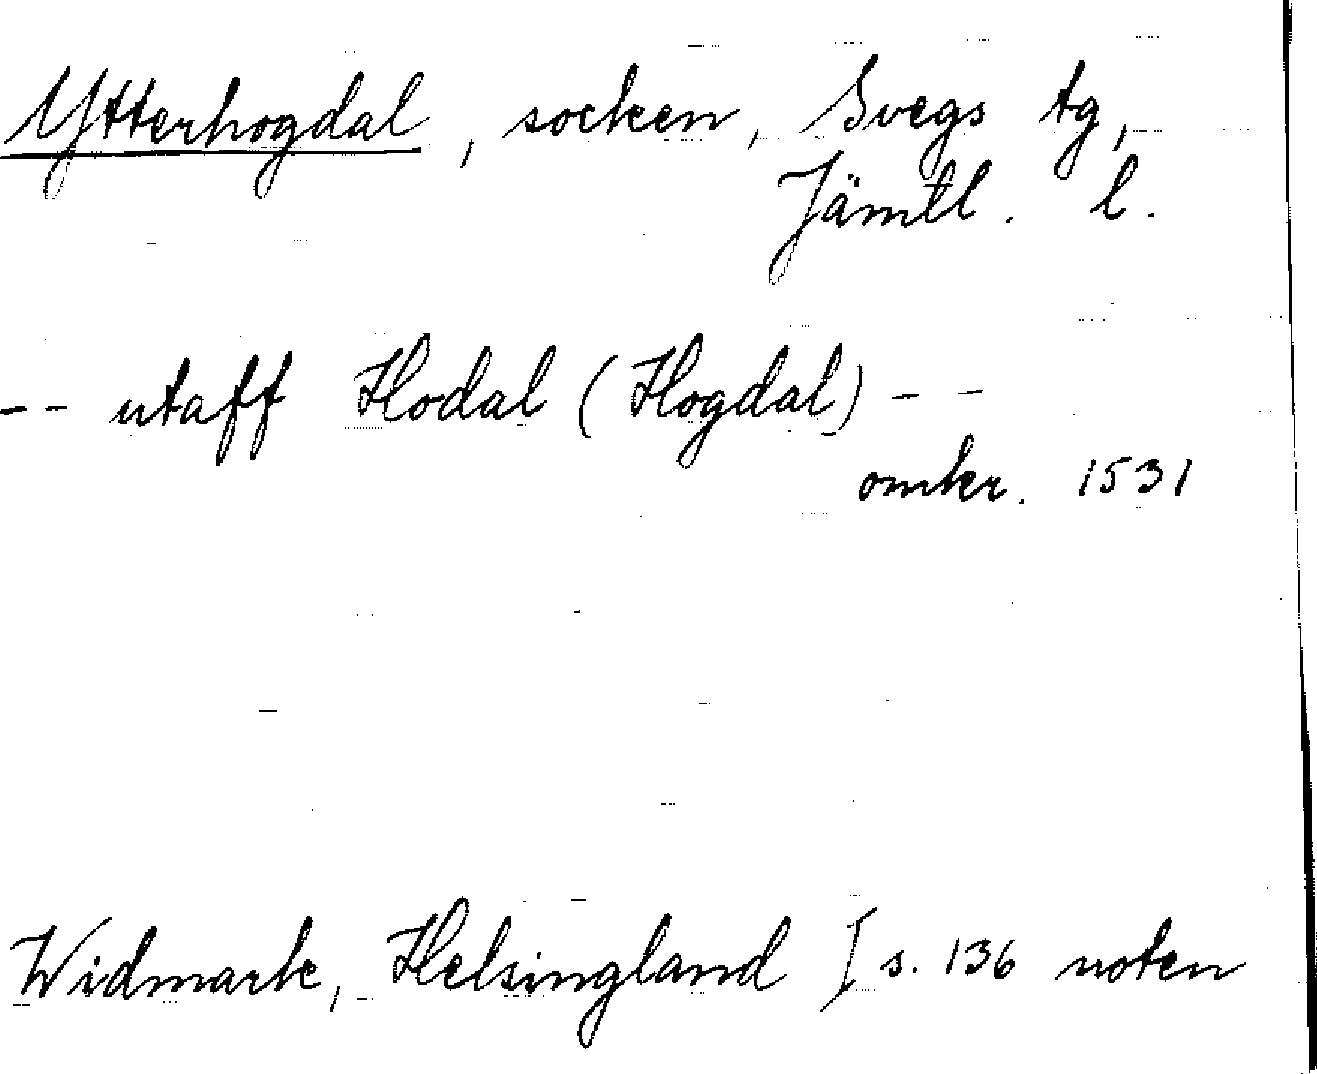 Ytterhogdal, socken, Svegs tg,
Jämtl. l.
-- utaff Hodal (Hogdal) --
omkr. 1531
Widmark, Helsingland I s. 136 noten